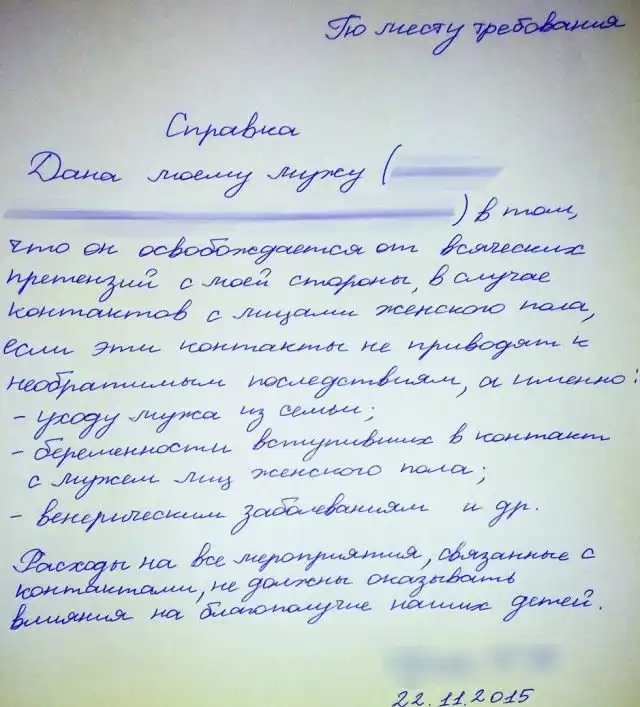 По месту требования
Справка
Дана моему мужу (
) в том,
что он освобождается от всяческих
претензий с моей стороны, в случае
контактов с лицами женского пола,
если эти контакты не приводят к
необратимым последствиям, а именно:
- уходу мужа из семьи;
- беременности вступивших в контакт
с мужем лиц женского пола;
- венерическим заболеваниям и др.
Расходы на все мероприятия, связанные с
контактами, не должны оказывать
влияния на благополучие наших детей.
22.11.2015